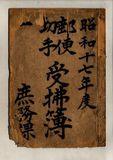 昭和十七年度
郵便切手受拂簿
庶務課